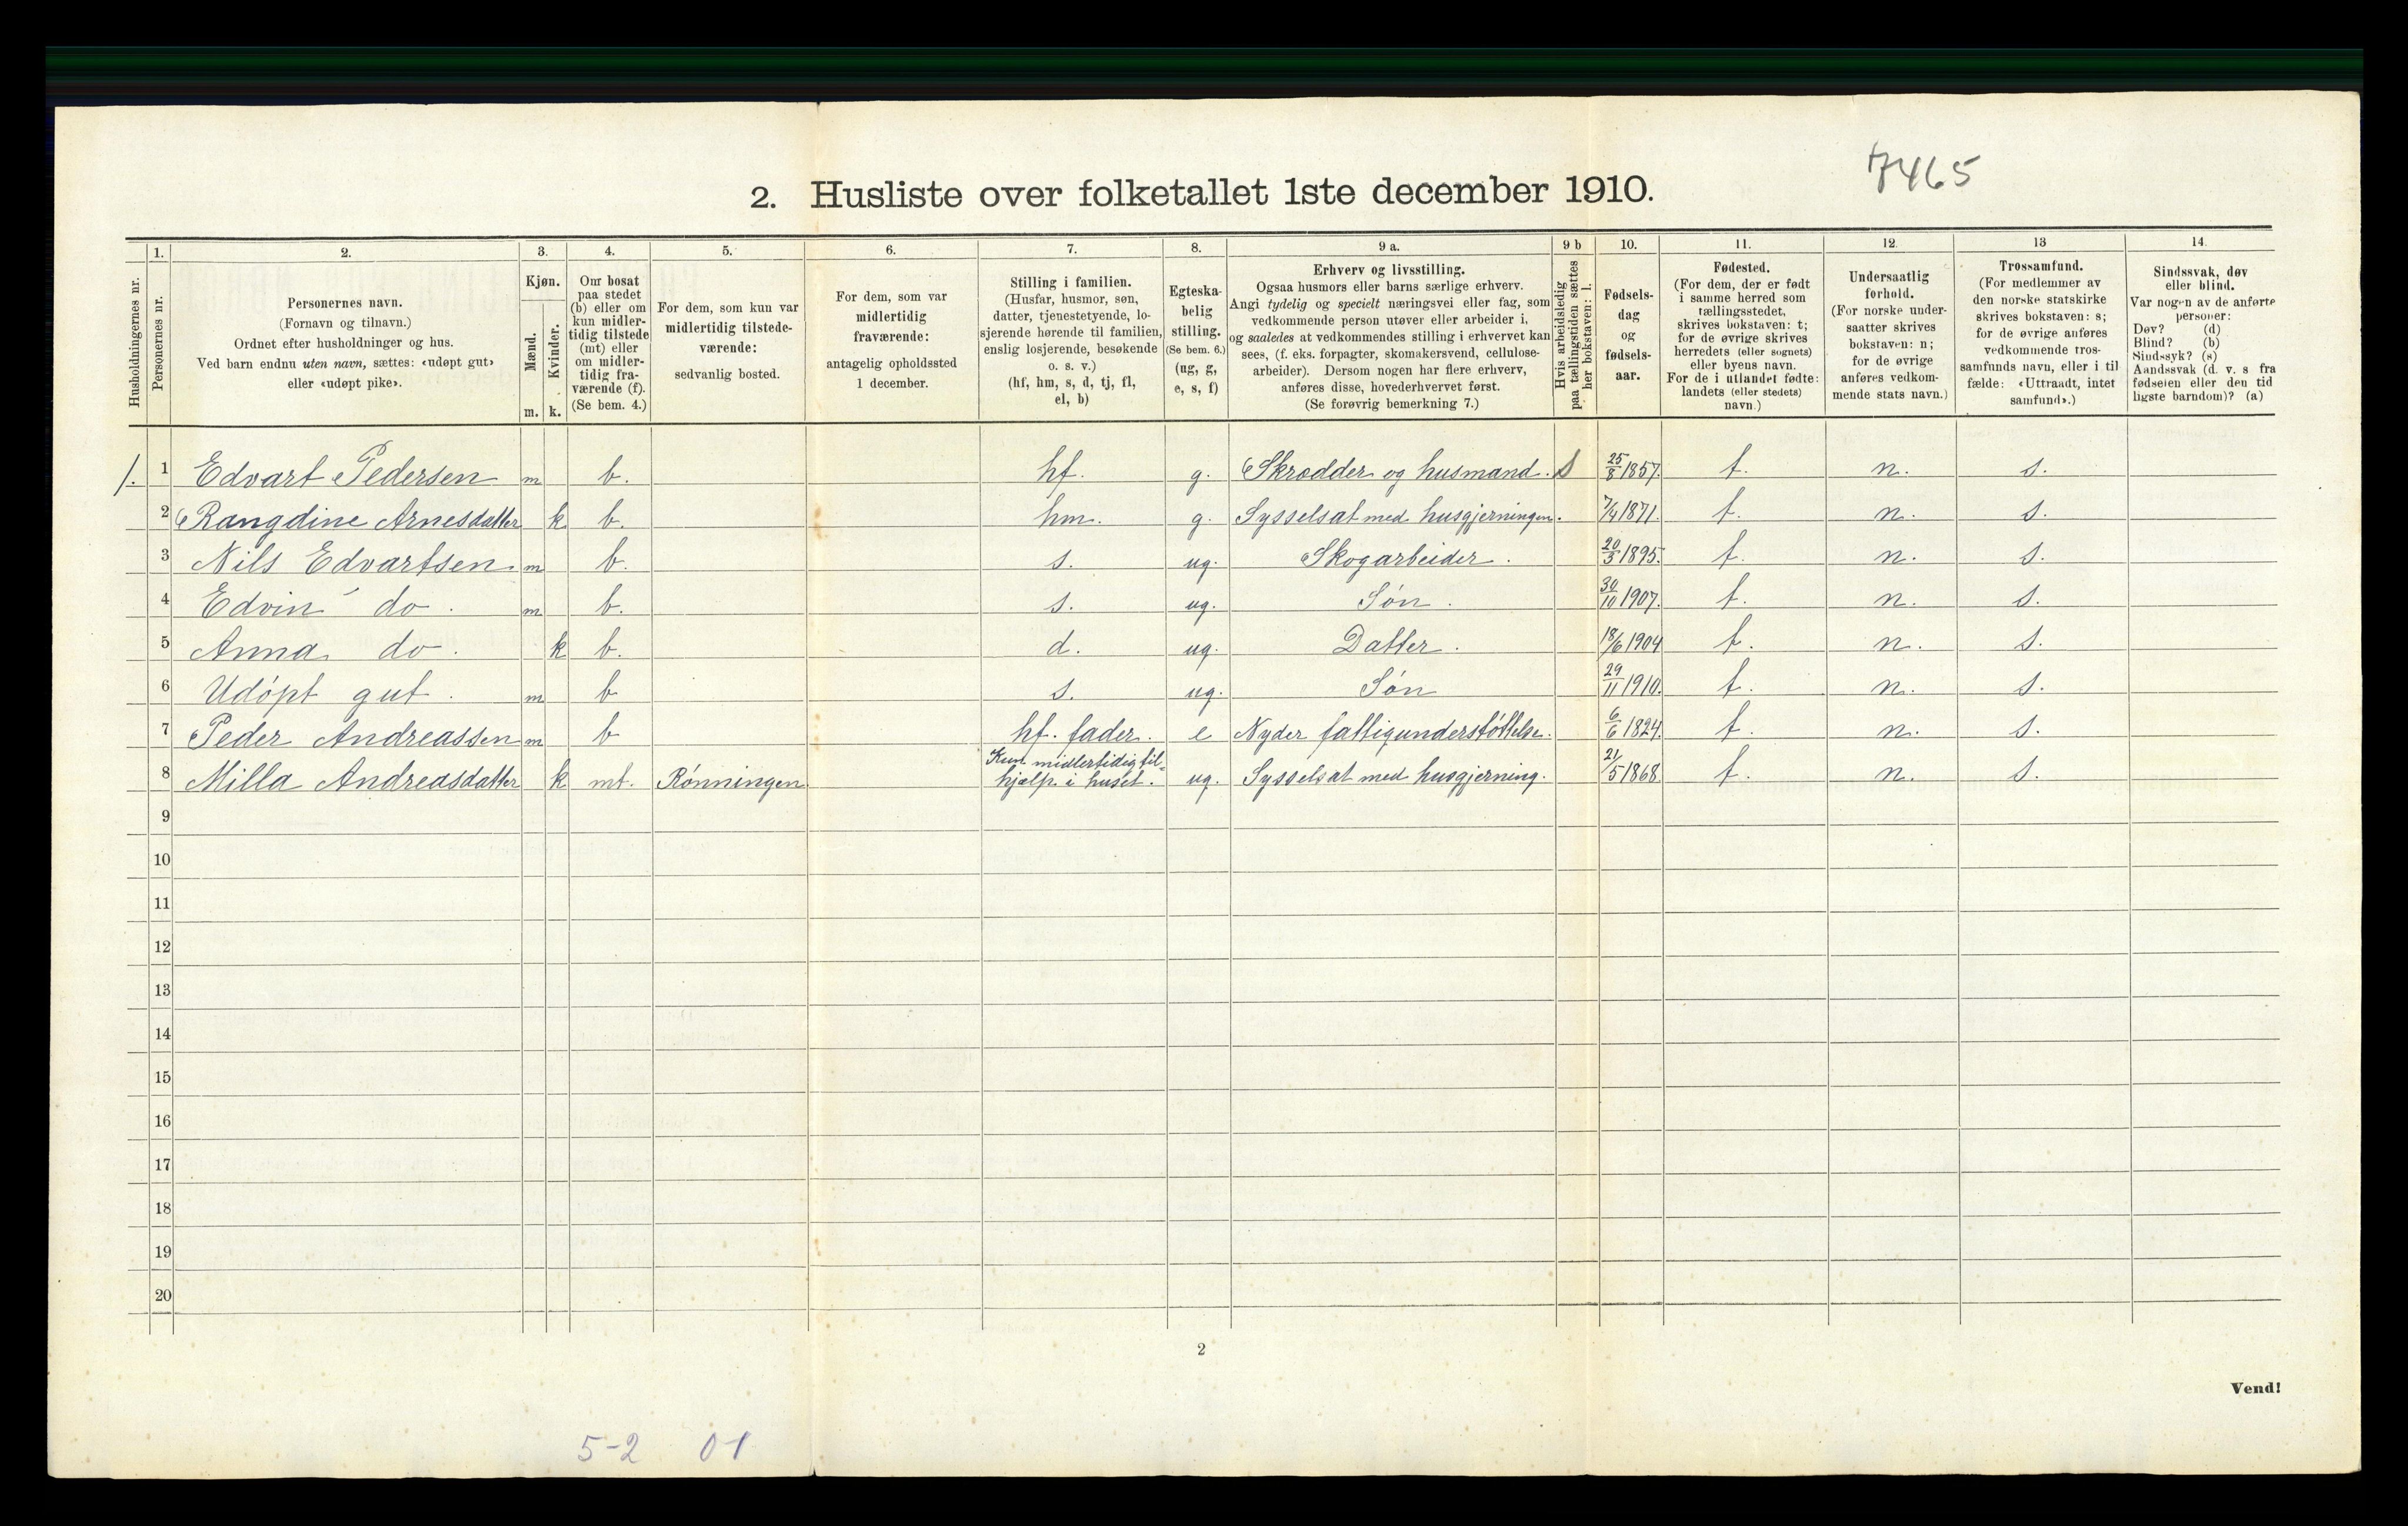 7465
2. Husliste over folketallet 1ste december 1910.
Husholdningernes nr.
1.
Personernes nr.
2.
Personernes navn.
(Fornavn og tilnavn.)
Ordnet efter husholdninger og hus.
Ved barn endnu uten navn, sættes: «udøpt gut»
eller «udøpt pike».
3.
Kjøn.
Mænd.
Kvinder.
m. k.
4.
Om bosat
paa stedet
(b) eller om
kun midler-
tidig tilstede
(mt) eller
om midler-
tidig fra-
værende (f).
(Se bem. 4.)
5.
For dem, som kun var
midlertidig tilstede-
værende:
sedvanlig bosted.
6.
For dem, som var
midlertidig
fraværende:
antagelig opholdssted
1 december.
7.
Stilling i familien.
(Husfar, husmor, søn,
datter, tjenestetyende, lo-
sjerende hørende til familien,
enslig losjerende, besøkende
o. s. v.)
(hf, hm, s, d, tj, fl,
el, b)
8.
Egteska-
belig
stilling.
(Se bem. 6.)
(ug, g,
e, s, f)
9 a.
Erhverv og livsstilling.
Ogsaa husmors eller barns særlige erhverv.
Angi tydelig og specielt næringsvei eller fag, som
vedkommende person utøver eller arbeider i,
og saaledes at vedkommendes stilling i erhvervet kan
sees, (f. eks. forpagter, skomakersvend, cellulose-
arbeider). Dersom nogen har flere erhverv,
anføres disse, hovederhvervet først.
(Se forøvrig bemerkning 7.)
9 b
Hvis arbeidsledig
paa tællingstiden sættes
her bokstaven: l.
10.
Fødsels-
dag
og
fødsels-
aar.
11.
Fødested.
(For dem, der er født
i samme herred som
tællingsstedet,
skrives bokstaven: t;
for de øvrige skrives
herredets (eller sognets)
eller byens navn.
For de i utlandet fødte:
landets (eller stedets)
navn.)
12.
Undersaatlig
forhold.
(For norske under-
saatter skrives
bokstaven: n;
for de øvrige
anføres vedkom-
mende stats navn.)
13
Trossamfund.
(For medlemmer av
den norske statskirke
skrives bokstaven: s;
for de øvrige anføres
vedkommende tros-
samfunds navn, eller i til
fælde: «Uttraadt, intet
samfund».)
14.
Sindssvak, døv
eller blind.
Var nogen av de anførte
personer:
Døv? (d)
Blind? (b)
Sindssyk? (s)
Aandssvak (d. v. s fra
fødselen eller den tid
ligste barndom)? (a)
1. 1 Edvart Pedersen m b. hf. g. Skrædder og husmand. 25/8 1857. t. n. s.
2 Rangdine Arnesdatter k b. hm. g. Sysselsat med husgjerningen. 7/4 1871. t. n. s.
3 Nils Edvartsen. m b. s. ug. Skogarbeider. 20/3 1895. t. n. s.
4 Edvin do. m b. s. ug. Søn. 30/10 1907. t. n. s.
5 Anna do. k b. d. ug. Datter. 18/6 1904 t. n. s.
6 Udøpt gut. m b s. ug. Søn 29/11 1910. t. n. s.
7 Peder Andreassen m b hf. fader. e Nyder fattigunderstøttelse. 6/6 1824. t. n. s.
8 Milla Andreasdatter k mt. Rønningen Kun midlertidig til-
hjælp i huset. ug. Sysselsat med husgjerning. 21/5 1868. t. n. s.
9
10
11
12
13
14
15
16
17
18
19
20
2
Vend!
5-2 0-1